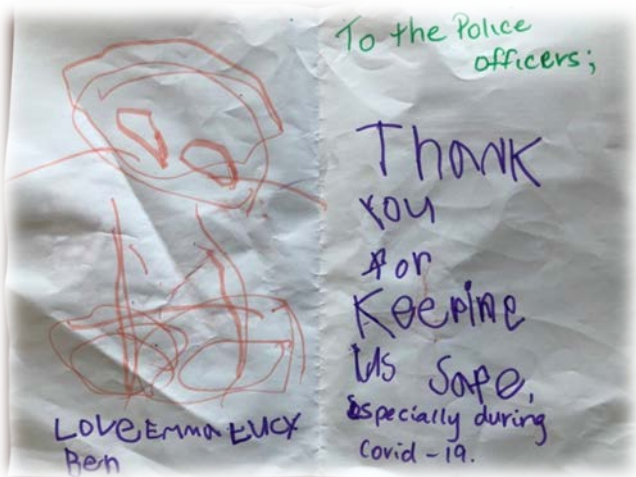 To the Police
officers;
Thank
you
for
Keepine
us safe,
especially during
Covid-19.
Love Emma Lucy
Ben